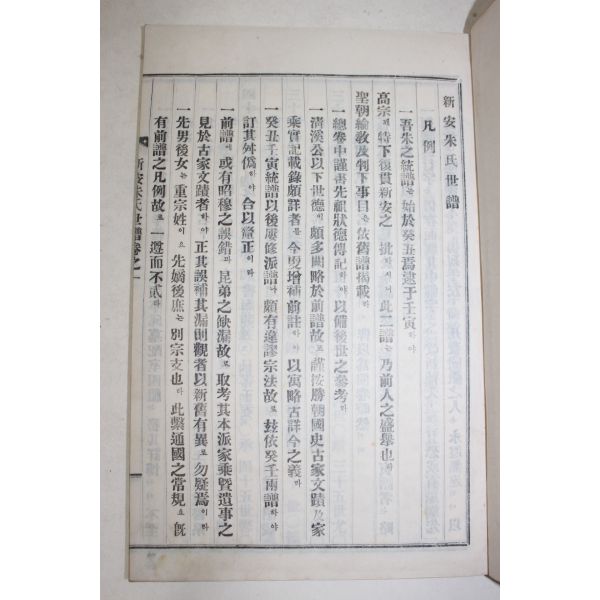 新安朱氏世譜
凡例
一吾朱之統譜는始於癸丑焉逮于壬寅하야
高宗께特下復貫新安之 批하시어此二譜는乃前人之盛擧也
聖朝綸敎及判下事目은依舊譜揭載
一總卷中謹書先祖狀德傳記하야以備後世之參考라
一淸溪公以下世德이頗多闕略於前譜故로謹按勝朝國史古家文蹟及家
乘實記載錄頗詳者를今更增補前註하야以寓略古詳今之義라
一癸丑壬寅統譜以後屢修派譜나頗有違謬宗法故로玆依癸壬兩譜하야
訂其舛僞하야合以釐正이라
一前譜에或有昭穆之誤錯과昆弟之缺漏故로取考其本派家乘曁遺事之
見於古家文蹟者하야正其誤補其漏則觀者以新舊有異로勿疑焉이라
一先男後女는重宗姓이오先嫡後庶는別宗支也라此繫通國之常規오旣
有前譜之凡例故로一遵而不貳라
新安朱氏世譜卷之一